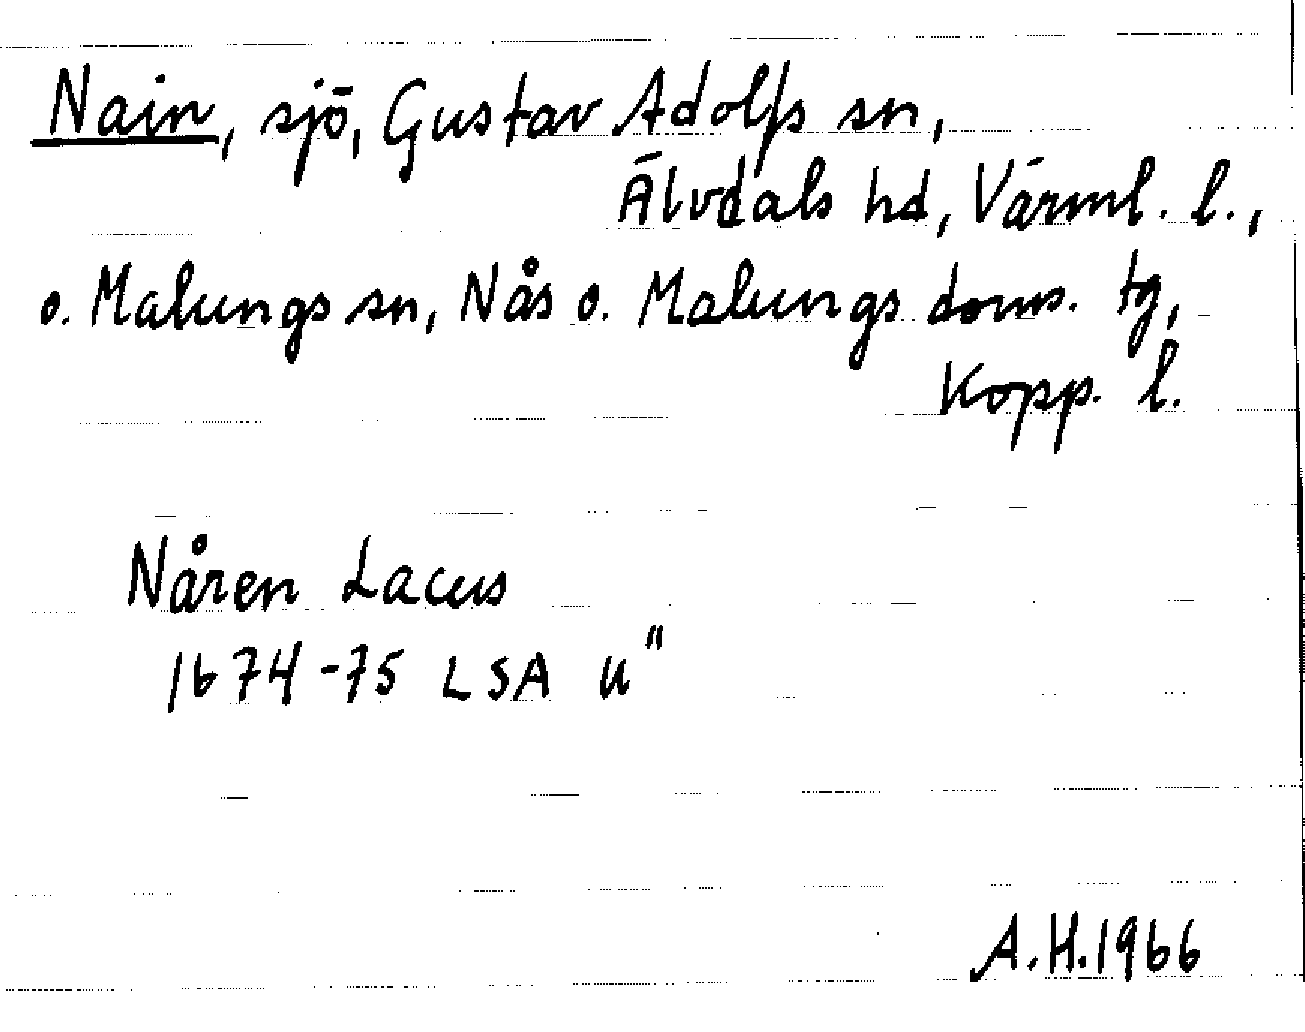 Nain, sjö, Gustav Adolfs sn,
Älvdals hd, Värml. l.,
o. Malungs sn, Nås o. Malungs doms. tg,
Kopp. l.
Nåren Lacus
1674-75 LSA U"
A.H.1966